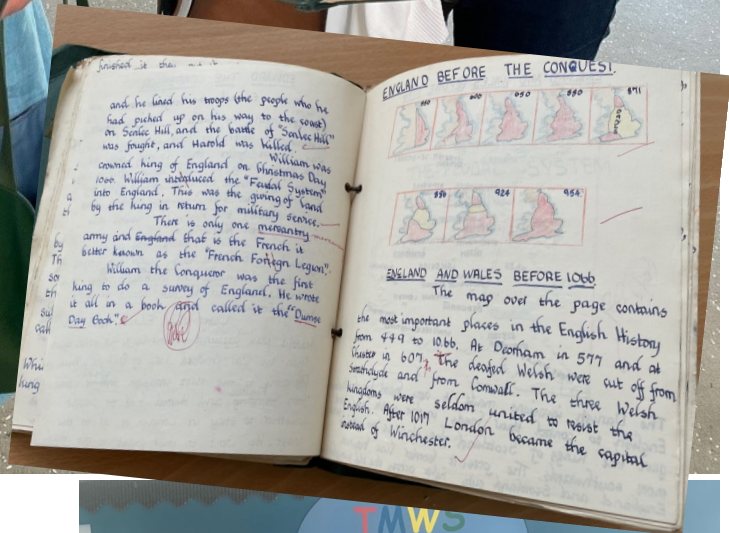 finished it they
and he lined his troops (the people who he
had picked up on his way to the coast)
on Senlec Hill, and the battle of "Senlec Hill"
was fought, and Harold was killed.
William was
crowned king of England on Christmas Day
1066. William introduced the "Feudal System"
into England. This was the giving of land
by the king in return for military service.
There is only one mersantry
army and England that is the French it
better known as the "French Foriegn Legion".
William the Conqueror was the first
king to do a survey of England. He wrote
it all in a book and called it the "Dumse
Day Book".
ENGLAND BEFORE THE CONQUEST.
600 650 850 871
924 954
ENGLAND AND WALES BEFORE 1066
The map over the page contains
the most important places in the English History
from 449 to 1066. At Deorham in 577 and at
Chester in 607. The deafed Welsh were cut off from
Strathclyde and from Cornwall. The three Welsh
kingdoms were seldom united to resist the
English. After 1017 London became the capital
instead of Winchester.
TMWS